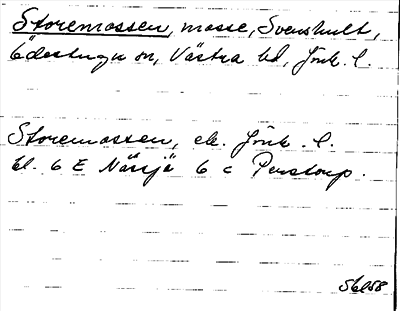 Storemossen, mosse, Svenshult,
Ödestugu sn, Västra hd, Jönk. l.
Storemossen, ek. Jönk. l.
bl. 6 E Nässjö 6 c Perstorp.